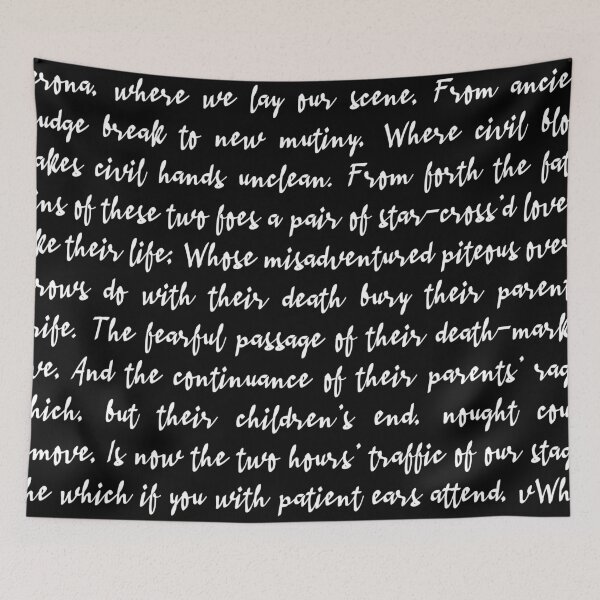 erona. where we lay our scene. From ancie
udge break to new mutiny. Where civil bloo
akes civil hands unclean. From forth the fat
ins of these two foes a pair of star-cross'd love
ke their life; Whose misadventured piteous over
rows do with their death bury their parent
rife. The fearful passage of their death-mark
ve. And the continuance of their parents' rag
hich. but their children's end. nought cou
move. Is now the two hours' traffic of our stag
he which if you with patient ears attend. vWh